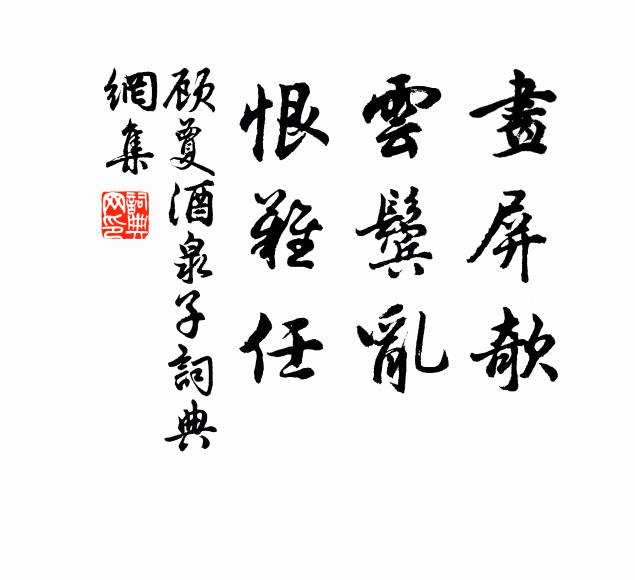 畫屏欹
雲鬢亂
恨難任
顾夐酒泉子詞典
網集
詞典
网印